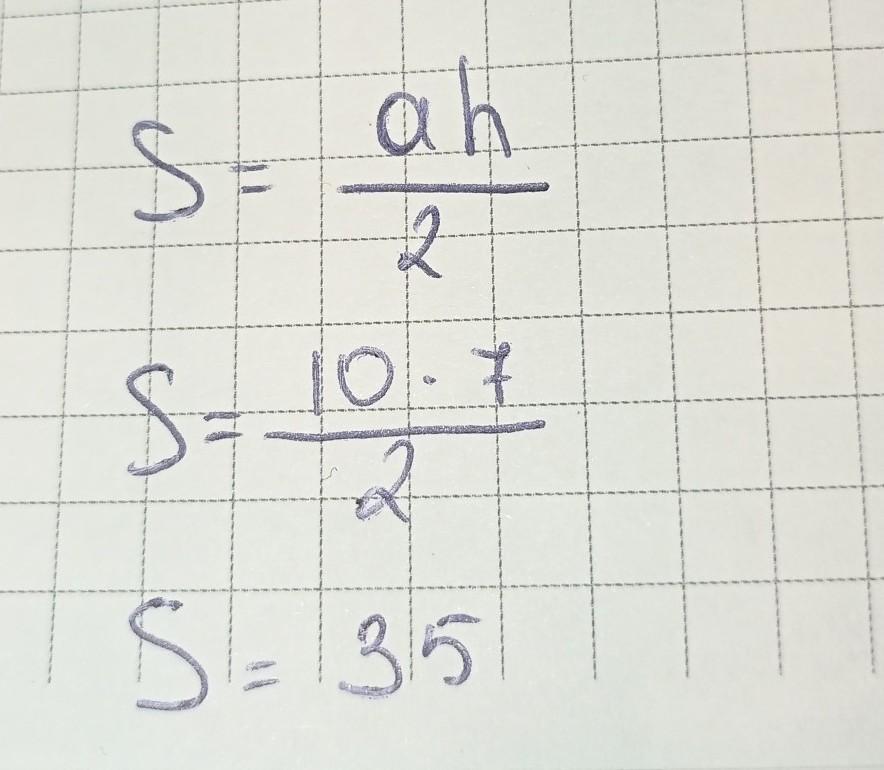 S = ah/2
S = 10 · 7/2
S = 35